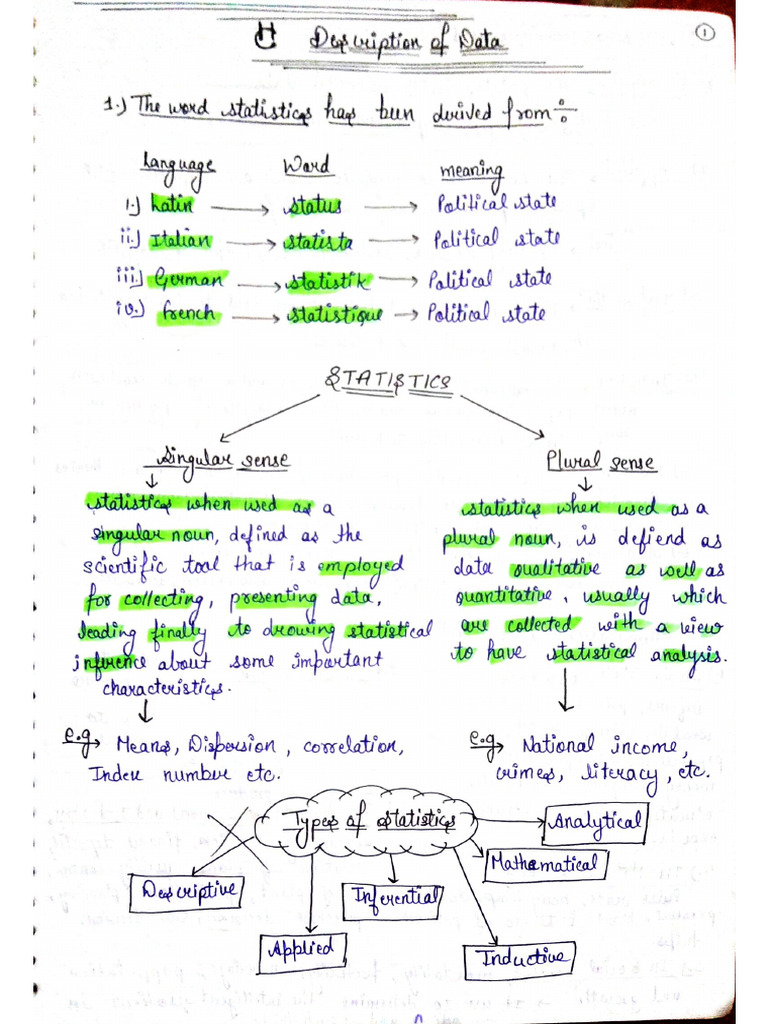 Description of Data
1
1.) The word statistics has been derived from ÷
Language Word meaning
i.) Latin → status → Political state
ii.) Italian → statista → Political state
iii.) German → statistik → Political state
iv.) french → statistique → Political state
STATISTICS
Singular sense
statistics when used as a
singular noun, defined as the
scientific tool that is employed
for collecting, presenting data,
leading finally to drowing statistical
inference about some important
characteristics.
e.g → Means, Dispersion, correlation,
Index number etc.
Plural sense
statistics when used as a
plural noun, is defiend as
data qualitative as well as
quantitative, usually which
are collected with a view
to have statistical analysis.
e.g → National income,
crimes, literacy, etc.
Types of statistics
Analytical
Mathematical
Descriptive
Inferential
Applied
Inductive